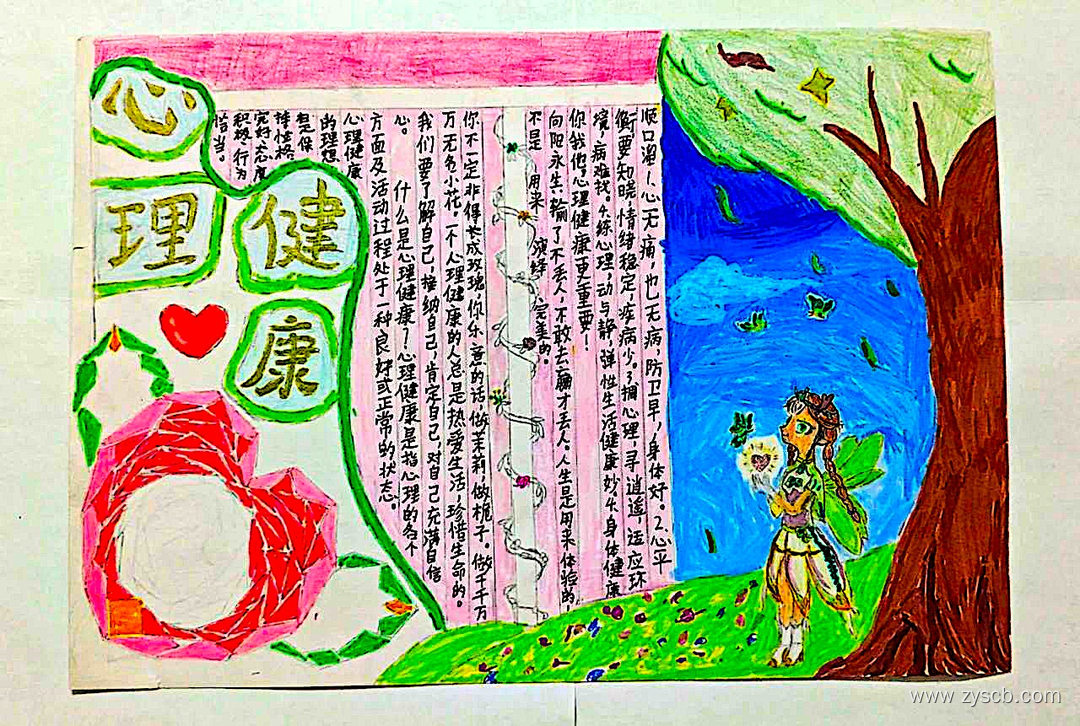 心
理
健
康
顺口溜1.心无痛,也无病,防卫早,身体好。2.心平
衡要知晓,情绪稳定,疾病少。3.调心理,寻逍遥,适应环
境,病难找。4.练心理,动与静,弹性生活健康妙。4.身体健康
你我他,心理健康更重要!
向阳永生,输了不丢人,不敢去输才丢人。人生是用来体验的,
不是用来演绎完美的。
你不一定非得长成玫瑰,你乐意的话,做茉莉,做栀子。做千千万
万无名小花。一个人理健康的人总是热爱生活,珍惜生命的。
我们要了解自己,接纳自己,肯定自己,对自己充满自信
心。 什么是心理健康!心理健康是指心理的各个
方面及活动过程处于一种良好或正常的状态。
心理健康
的理想
是保
持性格
完好、态度
积极、行为
恰当。
www.zyscb.com